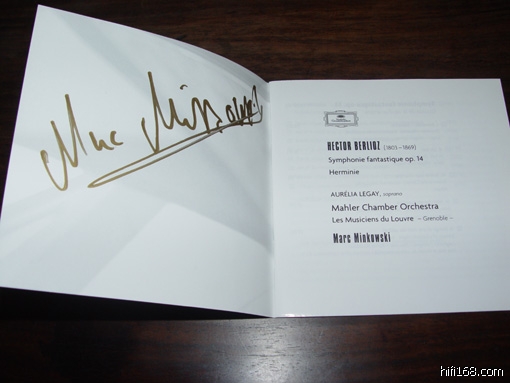 Marc Minkowski
HECTOR BERLIOZ (1803–1869)
Symphonie fantastique op. 14
Herminie
AURÉLIA LEGAY, soprano
Mahler Chamber Orchestra
Les Musiciens du Louvre – Grenoble –
Marc Minkowski
hifi168.com